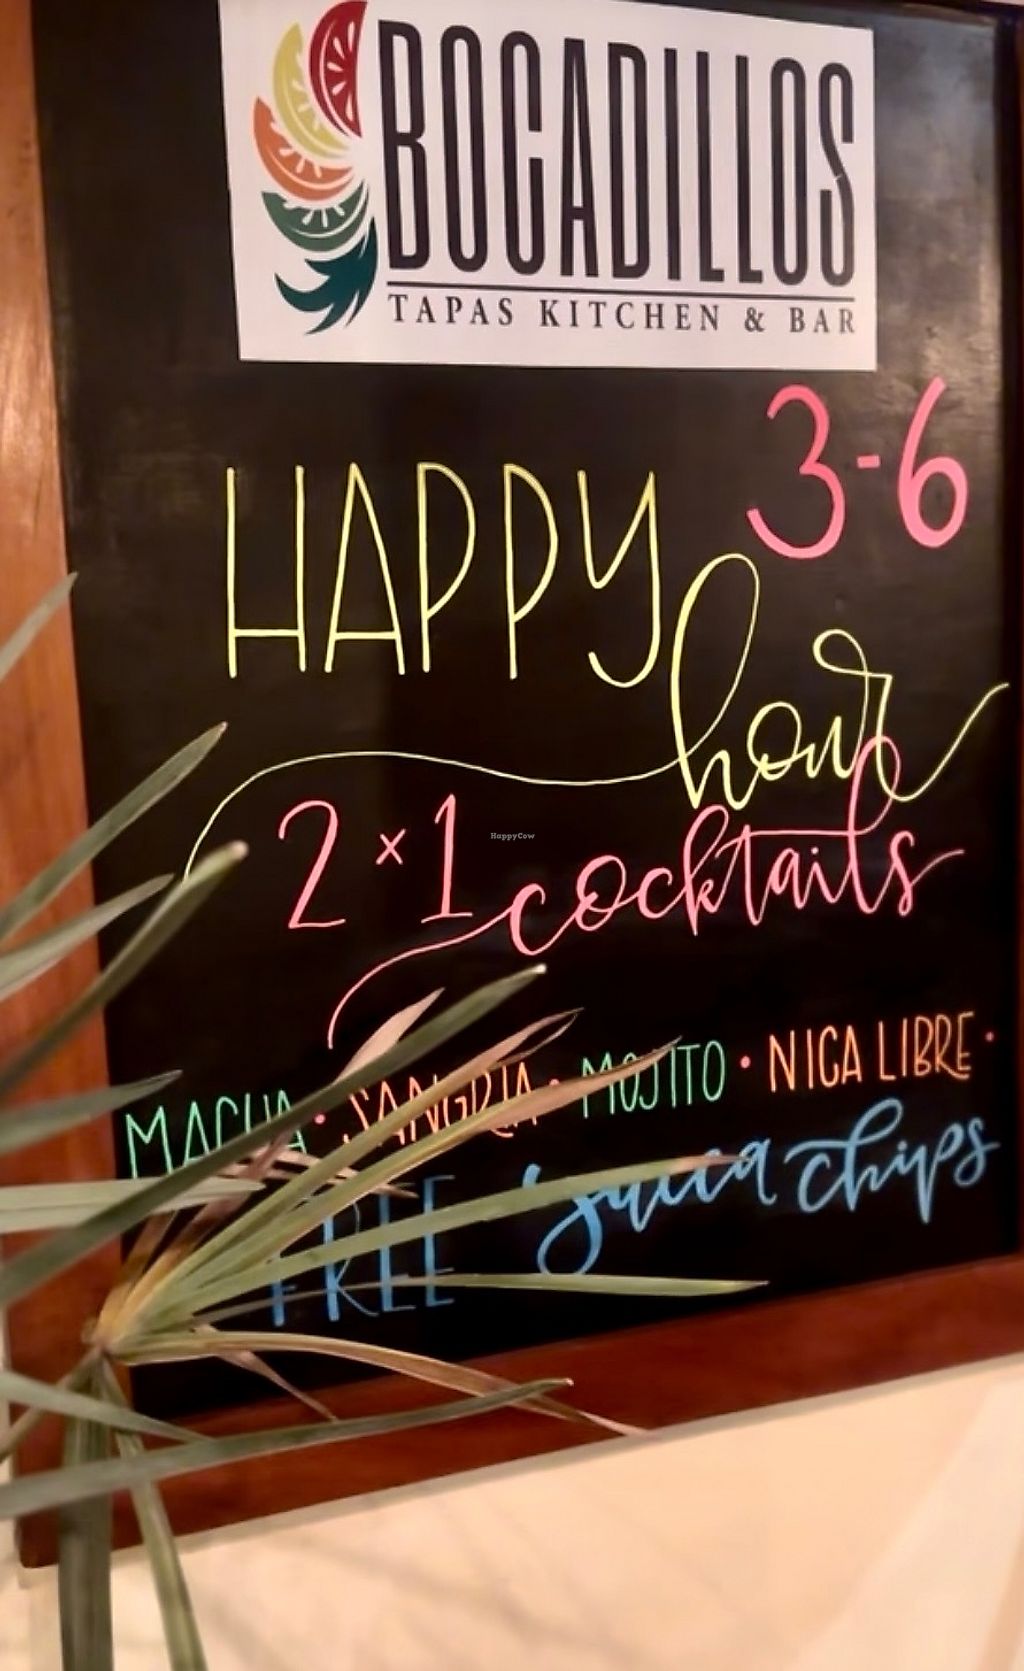 BOCADILLOS
TAPAS KITCHEN & BAR
3-6
HAPPY
hour
2x1 cocktails
MACUA · SANGRIA · MOJITO · NICA LIBRE ·
FREE yucca chips
HappyCow